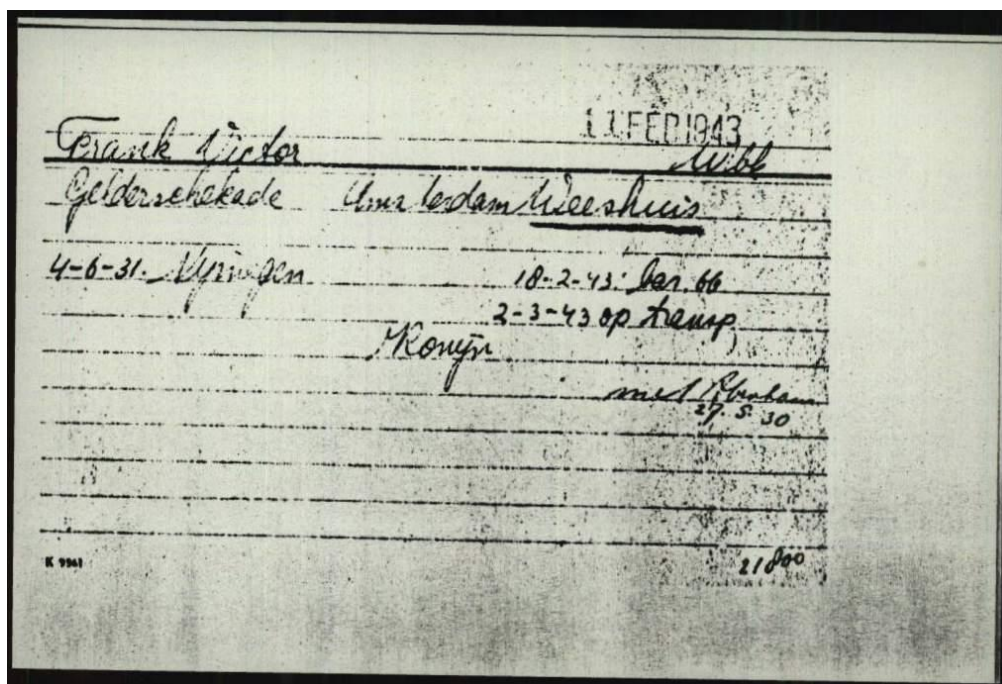 11 FEB 1943
Frank Victor
Gelderschekade Amsterdam Weeshuis
4-6-31. Nijmegen 18-2-43: bar. 66
2-3-43 op transp.
Konijn
met Abraham
27. 5. 30
K 9961 21800